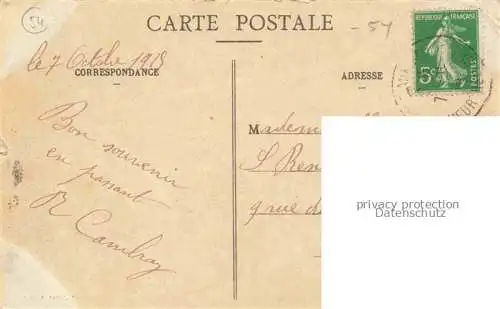 54
CARTE POSTALE
-54
REPUBLIQUE FRANÇAISE
5c
POSTES
le 7 Octobre 1918
CORRESPONDANCE
ADRESSE
Bon souvenir
en passant
R Cambray
M
Madem
S Ren
9 rue d
privacy protection
Datenschutz